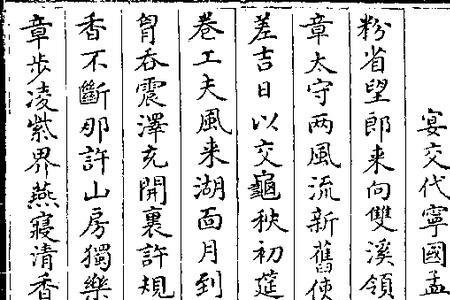 宴交代寧國孟
粉省望郎来向雙溪領
章太守两風流新舊使
差吉日以交龜秧初莚
巻工夫風来湖面月到
胷吞震澤充開裏許規
香不斷那許山房獨樂
章步凌紫界燕寢清香